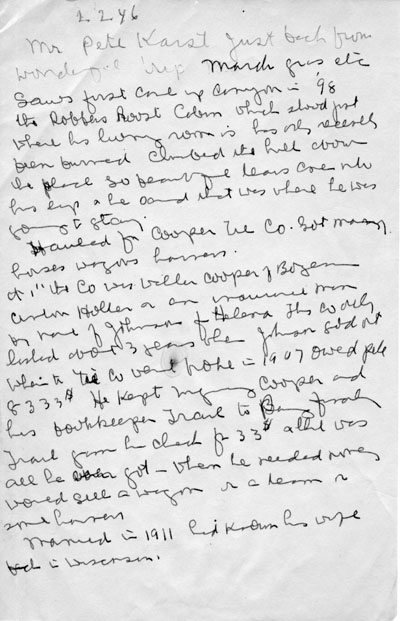 2 2 46
Mr Pete Karst just back from
wonderful trip March gras etc
Saws first came up Canyon in '98
the Robbers Roost Cabin which stood just
where his living room is has only recently
been burned Climbed the hill above
the place so beautiful tears came into
his eyes & he said that was where he was
going to stay.
Hauled for Cooper Tie Co. Got many
horses wagons harness.
at 1st the Co was Walter Cooper of Bozeman
Holler & an insurance man
by name of Johnson of Helena This Co only
lasted about 3 years when Johnson sold out
When the Tie Co went broke in 1907 owed pete
8333$ He kept Cooper and
his bookkeeper Trail to finally
Trail gave him check for 33$ & that was
all he ever got – When he needed money
would sell a wagon or a team or
some harness
Married in 1911 had known his wife
back in Wisconsin.